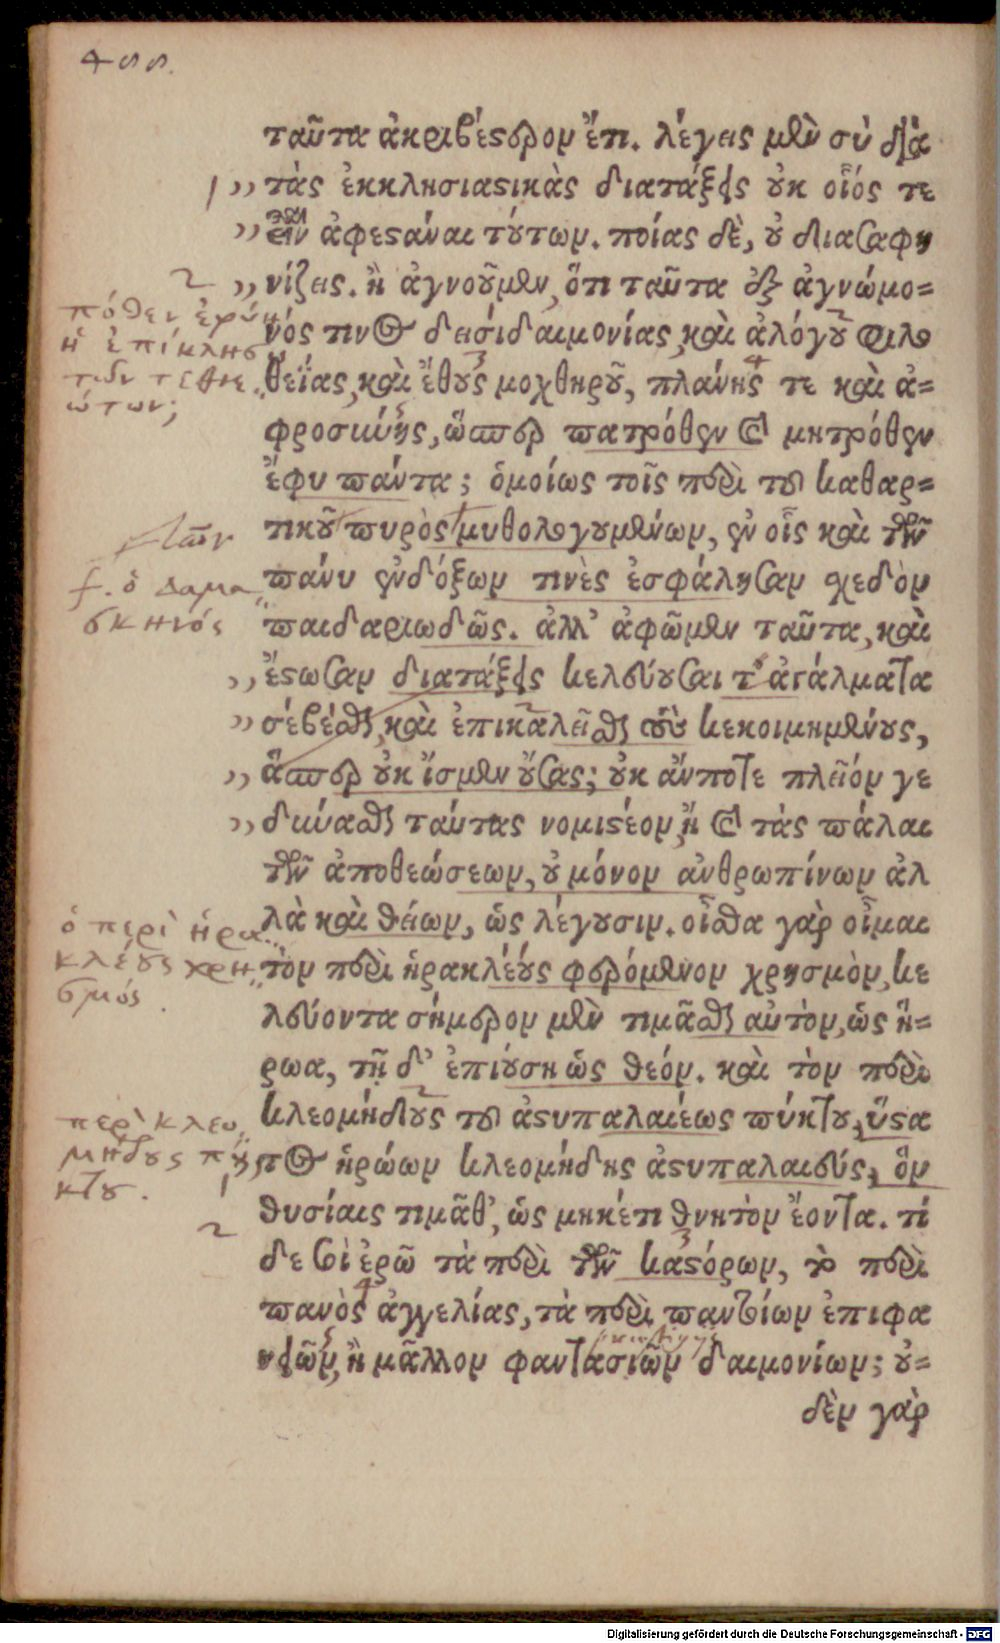 488.
ταῦτα ἀκριβέστερον ἔτι. λέγεις μὲν σὺ διὰ
τὰς ἐκκλησιαστικὰς διατάξεις οὐκ οἷός τε
εἶναι ἀφεστάναι τούτων. ποίας δὲ, οὐ διασαφη
νίζεις. ἢ ἀγνοοῦμεν, ὅτι ταῦτα ἐξ ἀγνώμο=
νός τινος δεισιδαιμονίας, καὶ ἀλόγου φιλο
θεΐας, καὶ ἔθους μοχθηροῦ, πλάνης τε καὶ ἀ=
φροσύνης, ὥσπερ πατρόθεν καὶ μητρόθεν
ἔφυ πάντα; ὁμοίως τοῖς περὶ τοῦ καθαρ=
τικοῦ πυρὸς μυθολογουμένων, ἐν οἷς καὶ τῶν
πάνυ ἐνδόξων τινὲς ἐσφάλησαν σχεδὸν
παιδαριωδῶς. ἀλλ' ἀφῶμεν ταῦτα, καὶ
ἔστωσαν διατάξεις κελεύουσαι τὰ ἀγάλματα
σέβεσθαι, καὶ ἐπικαλεῖσθαι τοὺς κεκοιμημένους,
ἅσπερ οὐκ ἴσμεν οὔσας; οὐκ ἄν ποτε πλεῖόν γε
δύνασθαι ταύτας νομιστέον, ἢ καὶ τὰς πάλαι
τῶν ἀποθεώσεων, οὐ μόνον ἀνθρωπίνων ἀλ
λὰ καὶ θείων, ὡς λέγουσιν. οἶσθα γὰρ οἶμαι
τὸν περὶ ἡρακλέους φερόμενον χρησμὸν, κε
λεύοντα σήμερον μὲν τιμᾶσθαι αὐτὸν, ὡς ἥ=
ρωα, τῇ δ' ἐπιούσῃ ὡς θεόν. καὶ τὸν περὶ
κλεομήδους τοῦ ἀστυπαλαιέως πύκτου, ὕστα
τος ἡρώων κλεομήδης ἀστυπαλαιεύς, ὃν
θυσίαις τιμᾶθ', ὡς μηκέτι θνητὸν ἔοντα. τί
δέ σοι ἐρῶ τὰ περὶ τῶν καστόρων, τὰ περὶ
πανὸς ἀγγελίας, τὰ περὶ παντοίων ἐπιφα
νειῶν, ἢ μᾶλλον φαντασιῶν δαιμονίων; οὐ=
δὲν γὰρ
πόθεν ἐρύη
ἡ ἐπίκλησις
τῶν τεθνε
ώτων;
τῶν
f. ὁ Δαμα
σκηνός
ὁ περὶ ἡρα
κλέους χρη
σμός.
περὶ κλεο
μήδους πύ
κτου.
Digitalisierung gefördert durch die Deutsche Forschungsgemeinschaft - DFG